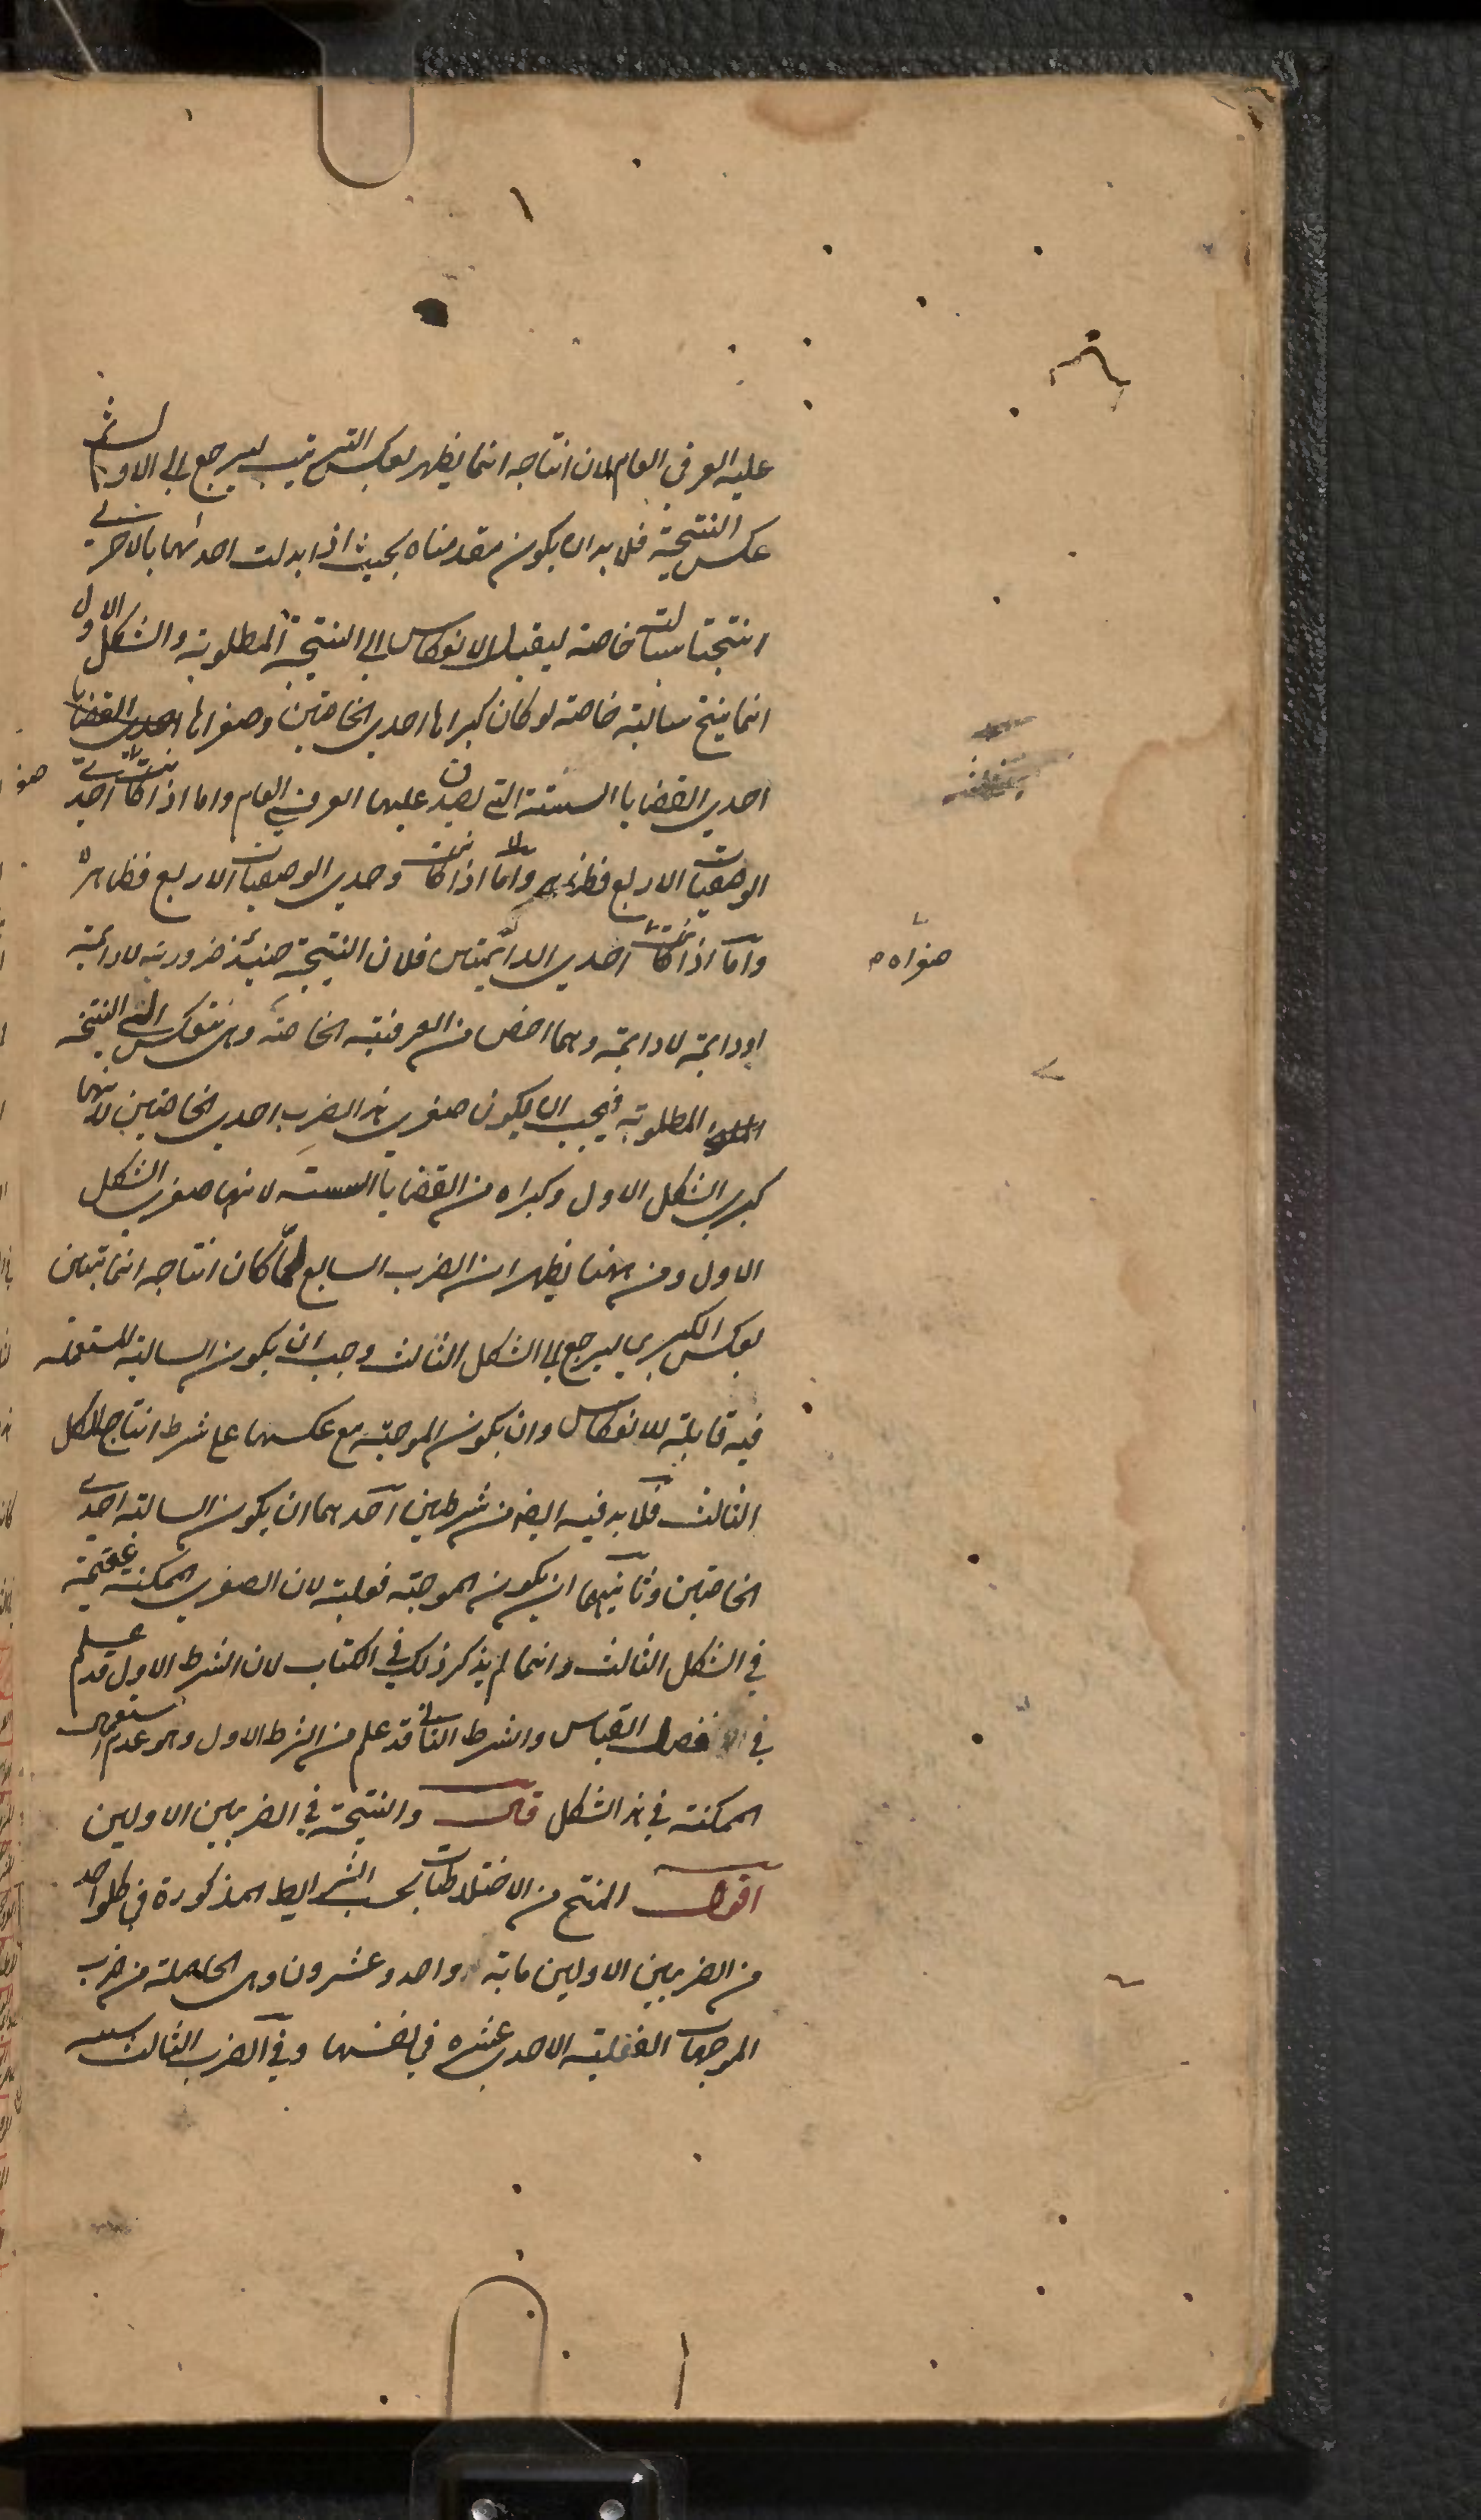 عليه العرفي العام لان انتاجه انما يظهر بعكس الترتيب ليرجع الى الاول ثم
عكس النتيجة فلا بد ان يكون مقدمتاه بحيث اذا بدلت احداهما بالاخرى
انتجتا سالبة خاصة ليقبل الانعكاس الى النتيجة المطلوبة والشكل الاول
انما ينتج سالبة خاصة لو كان كبراها احدى الخاصتين وصغراها احدى القضايا
احدى القضايا الستة التي يصدق عليها العرفي العام واما اذا كانت احدى
الوصفيات الاربع فظاهر واما اذا كانت وحدى الوصفيات الاربع فظاهرة
واما اذا كانت احدى الدائمتين فلان النتيجة حينئذ ضرورية لادائمة
او دايمة لادايمة وهما اخص من العرفية الخاصة وهي تنعكس الى النتيجة
المطلوبة فيجب ان يكون صغرى هذا الضرب احدى الخاصتين لانها
كبرى الشكل الاول وكبراه من القضايا الستة لانها صغرى الشكل
الاول ومن ههنا يظهر ان الضرب السابع لما كان انتاجه انما يتبين
بعكس الكبرى ليرجع الى الشكل الثالث وجب ان يكون السالبة المستعملة
فيه قابلة للانعكاس وان يكون الموجبة مع عكسها على شرط انتاج الشكل
الثالث فلا بد فيه ايضا من شرطين احدهما ان يكون السالبة احدى
الخاصتين وثانيهما ان يكون الموجبة فعلية لان الصغرى الممكنة عقيمة
في الشكل الثالث وانما لم يذكر ذلك في الكتاب لان الشرط الاول قد علم
في فصل القياس والشرط الثاني قد علم من الشرط الاول وهو عدم استعمال
الممكنة في هذا الشكل قال والنتيجة في الضربين الاولين
اقول المنتج من الاختلاطات بحسب الشرايط المذكورة في كل واحد
من الضربين الاولين ماية واحد وعشرون وهي الحاصلة من ضرب
الموجهات الفعلية الاحدى عشره في نفسها وفي الضرب الثالث
صغراه م